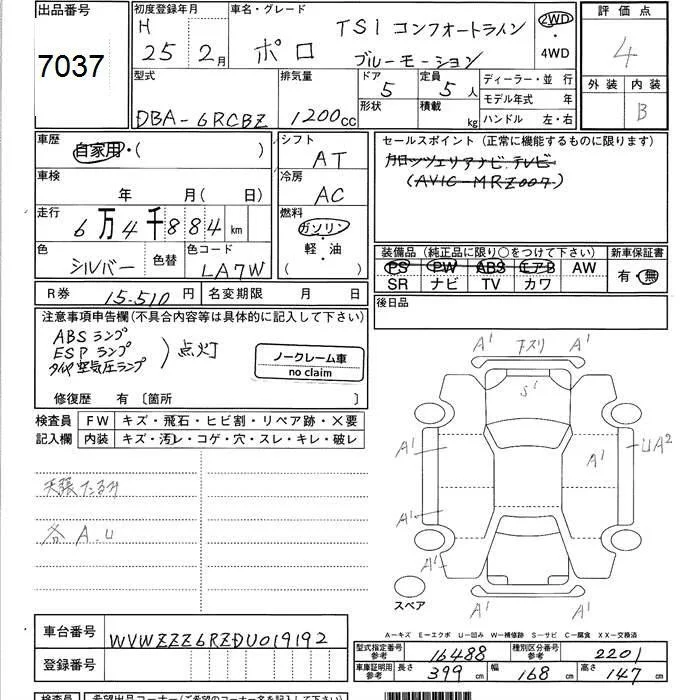 出品番号
7037
初度登録年月
H
25 2月
車名・グレード
ポロ
TSI コンフォートライン
ブルーモーション
2WD
・
4WD
評価点
4
外装 内装
B
型式
DBA-6RCBZ
排気量
1200cc
ドア
5
形状
定員
5人
積載
kg
ディーラー・並 行
モデル年式 年
ハンドル 左・右
車歴
自家用・( )
車検
年 月( 日)
走行
6万4千884km
色
シルバー
色替
色コード
LA7W
シフト
AT
冷房
AC
燃料
ガソリン
・
軽・油
( )
セールスポイント(正常に機能するものに限ります)
カロッツェリアナビ.テレビ
(AVIC-MRZ007)
装備品(純正品に限り○をつけて下さい)
PS PW ABS エアB AW
SR ナビ TV カワ
新車保証書
有・無
後日品
R券 15.510円 名変期限 月 日
注意事項申告欄(不具合内容等は具体的に記入して下さい)
ABSランプ
ESPランプ
タイヤ空気圧ランプ
点灯
ノークレーム車
no claim
修復歴 有〔箇所 〕
検査員
記入欄
FW キズ・飛石・ヒビ割・リペア跡・×要
内装 キズ・汚レ・コゲ・穴・スレ・キレ・破レ
天張たるみ
各 A.U
A' スリ A'
S'
A'
A'
UA²
A'
A'
A' A'
スペア
A-キズ E-エクボ U-凹み W-補修跡 S-サビ C-腐食 XX-交換済
車台番号 WVWZZZ6RZDU019192
登録番号
型式指定番号
参考
16488
種別区分番号
参考
2201
車庫証明用
参考
長さ 399cm 幅 168cm 高さ 147cm
検査員 希望出品コーナー(ご希望のコーナー名を記入して下さい)